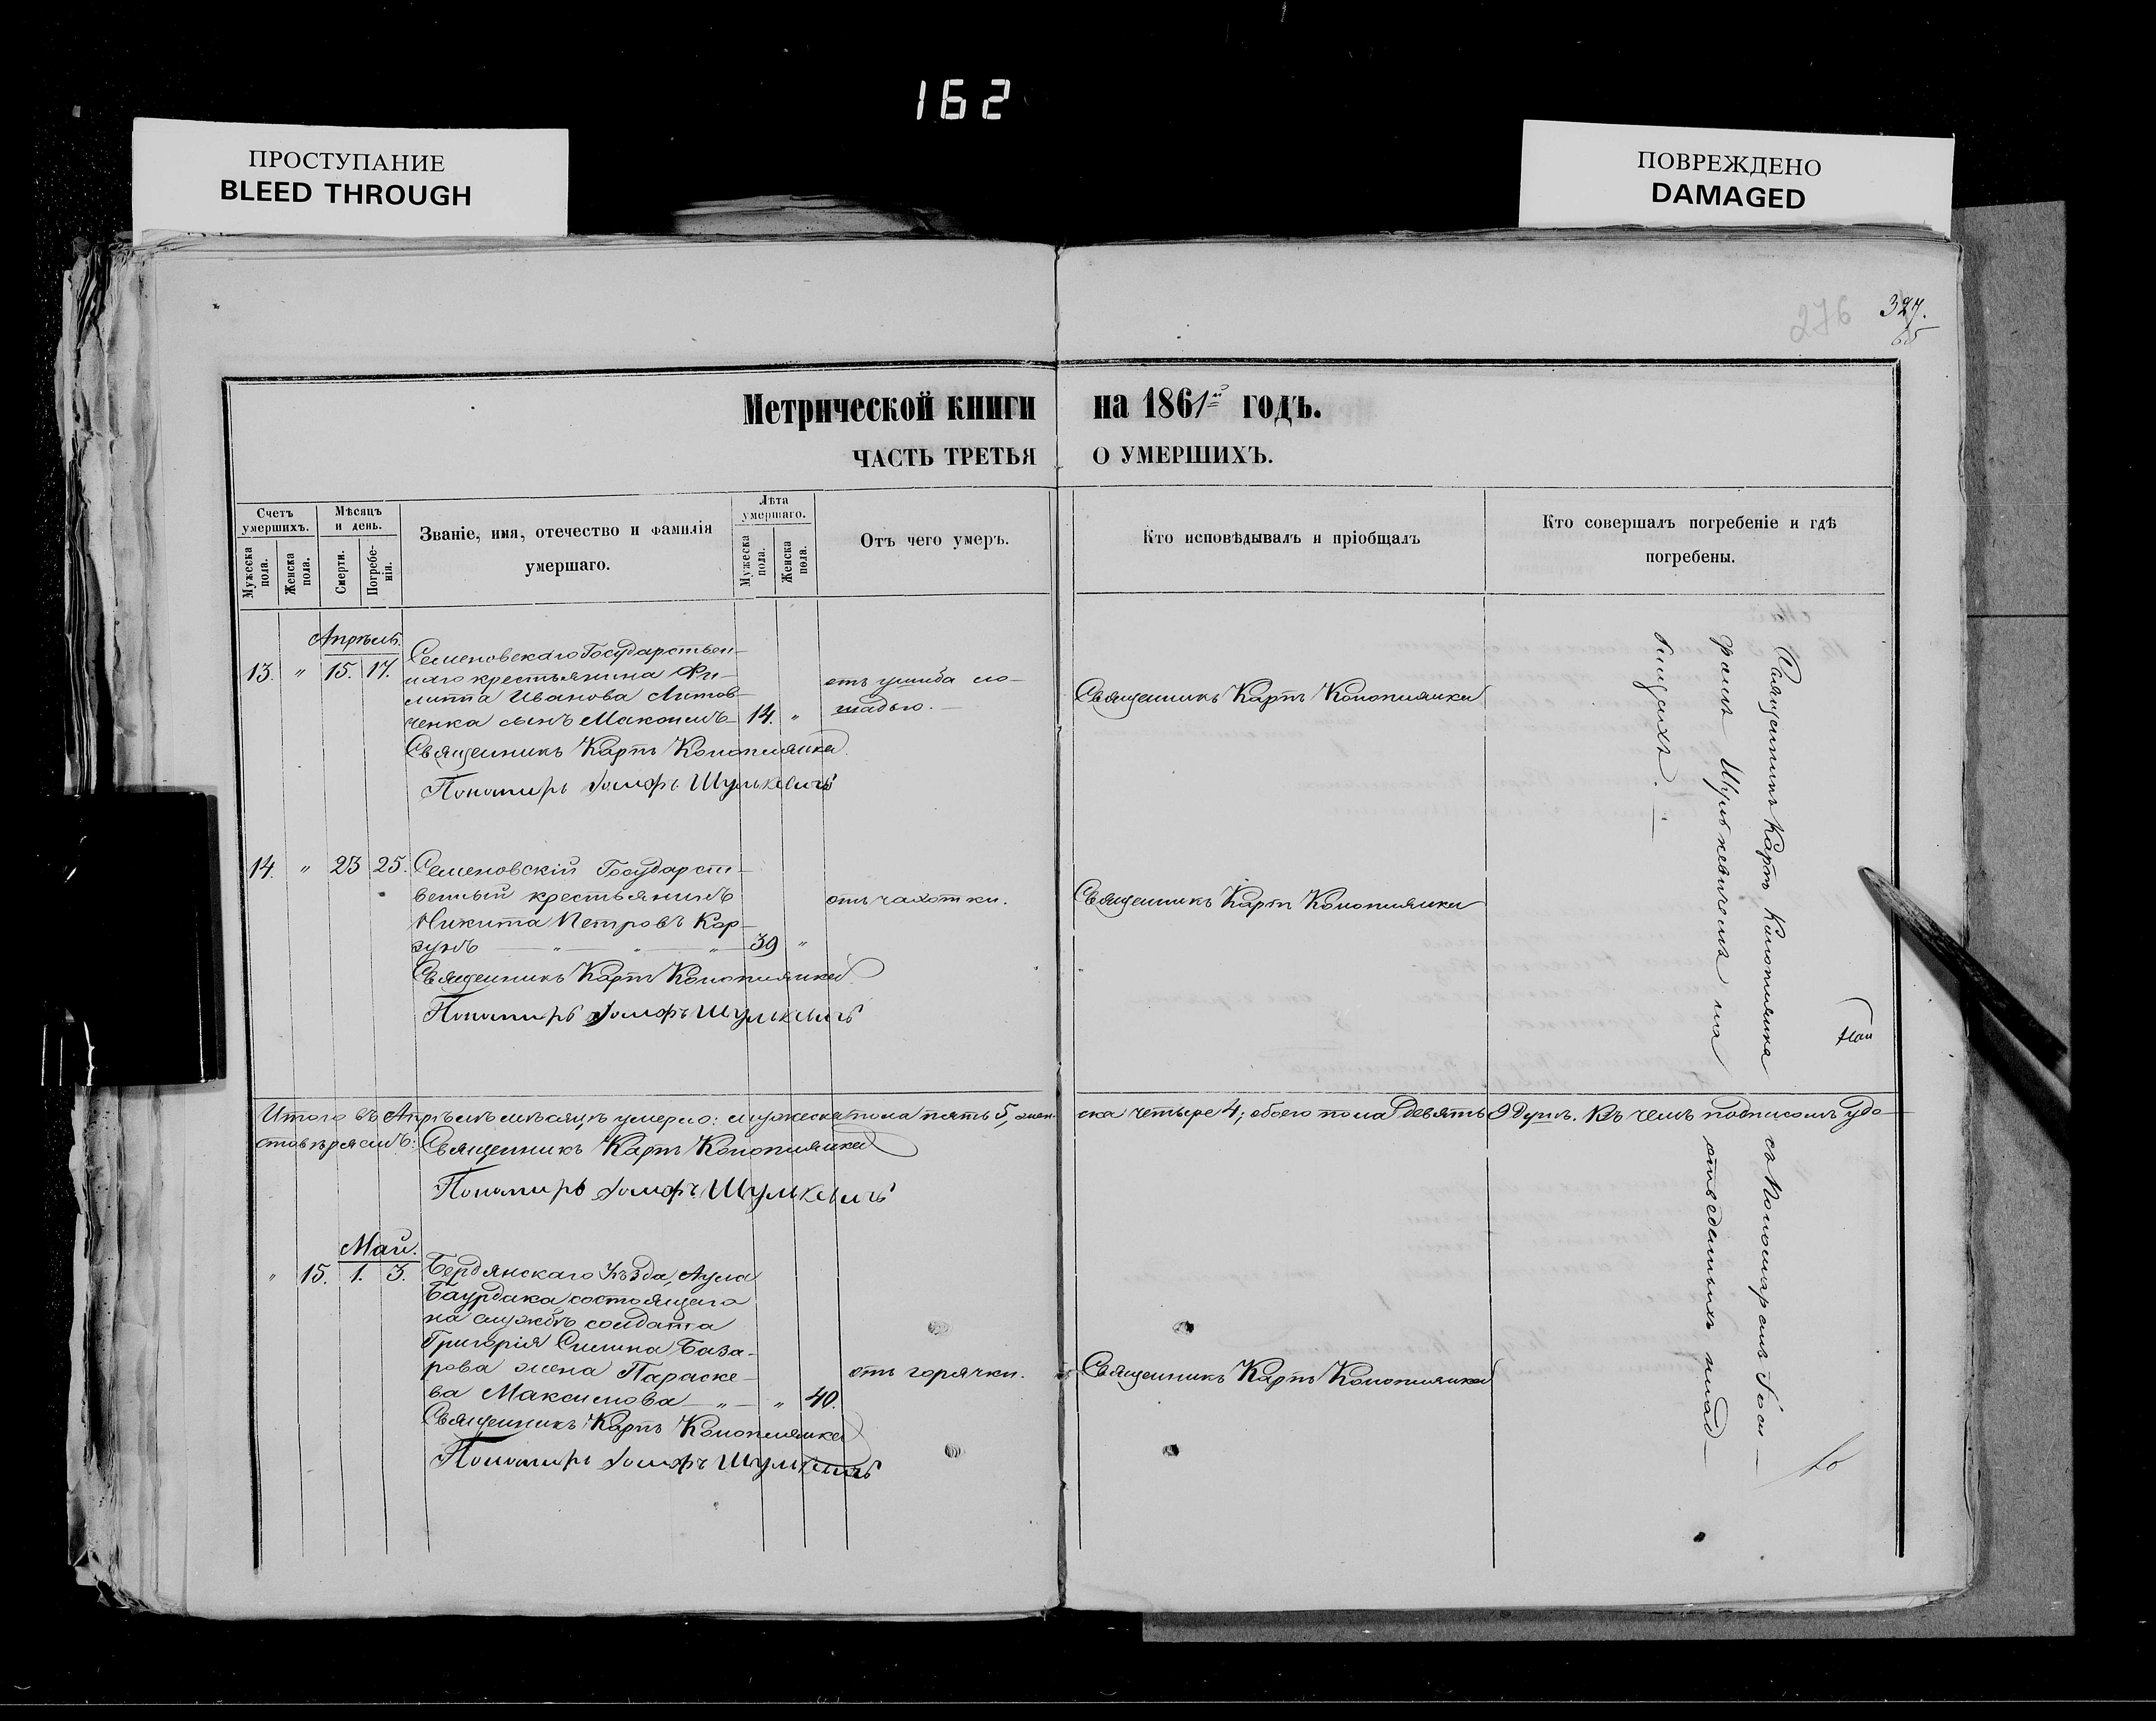 162
ПРОСТУПАНИЕ
BLEED THROUGH
ПОВРЕЖДЕНО
DAMAGED
276
327.
65
Метрической книги на 1861й годъ.
ЧАСТЬ ТРЕТЬЯ О УМЕРШИХЪ.
Счетъ умершихъ.
Мужеска пола.
Женска пола.
Мѣсяцъ и день.
Смерти.
Погребенія.
Званіе, имя, отечество и фамилія
умершаго.
Лѣта умершаго.
Мужеска пола.
Женска пола.
Отъ чего умеръ.
Кто исповѣдывалъ и пріобщалъ
Кто совершалъ погребеніе и гдѣ
погребены.
Апрѣль.
13. " 15. 17. Семеновскаго Государствен-
наго крестьянина Фи-
липпа Иванова Литов-
ченка сынъ Максимъ 14. "
отъ ушиба ло-
шадью.
Священникъ Карпъ Конопляика
Священникъ Карпъ Конопляика
Пономарь Іосифъ Шулькевичъ
14. " 23 25. Семеновскій Государст-
венный крестьянинъ
Никита Петровъ Кор-
зунъ " " " 39 "
отъ чахотки.
Священникъ Карпъ Конопляика
Священникъ Карпъ Конопляика
Пономарь Іосифъ Шулькевичъ
Итого въ Апрѣлѣ мѣсяцѣ умерло: мужеска пола пять 5, жен-
ска четыре 4; обоего пола девять 9 душъ. Въ чемъ подписомъ удо-
стовѣряемъ: Священникъ Карпъ Конопляика
Пономарь Іосифъ Шулькевичъ
Май.
" 15. 1. 3. Бердянскаго уѣзда, Аула
Баурдака состоящаго
на службѣ солдата
Григорія Силина База-
рова жена Параске-
ва Максимова " " 40.
отъ горячки.
Священникъ Карпъ Конопляика
Священникъ Карпъ Конопляика
Пономарь Іосифъ Шулькевичъ
Священникъ Карпъ Конопляика съ Пономаремъ Іоси-
фомъ Шулькевичемъ на отведенныхъ клад-
бищахъ.